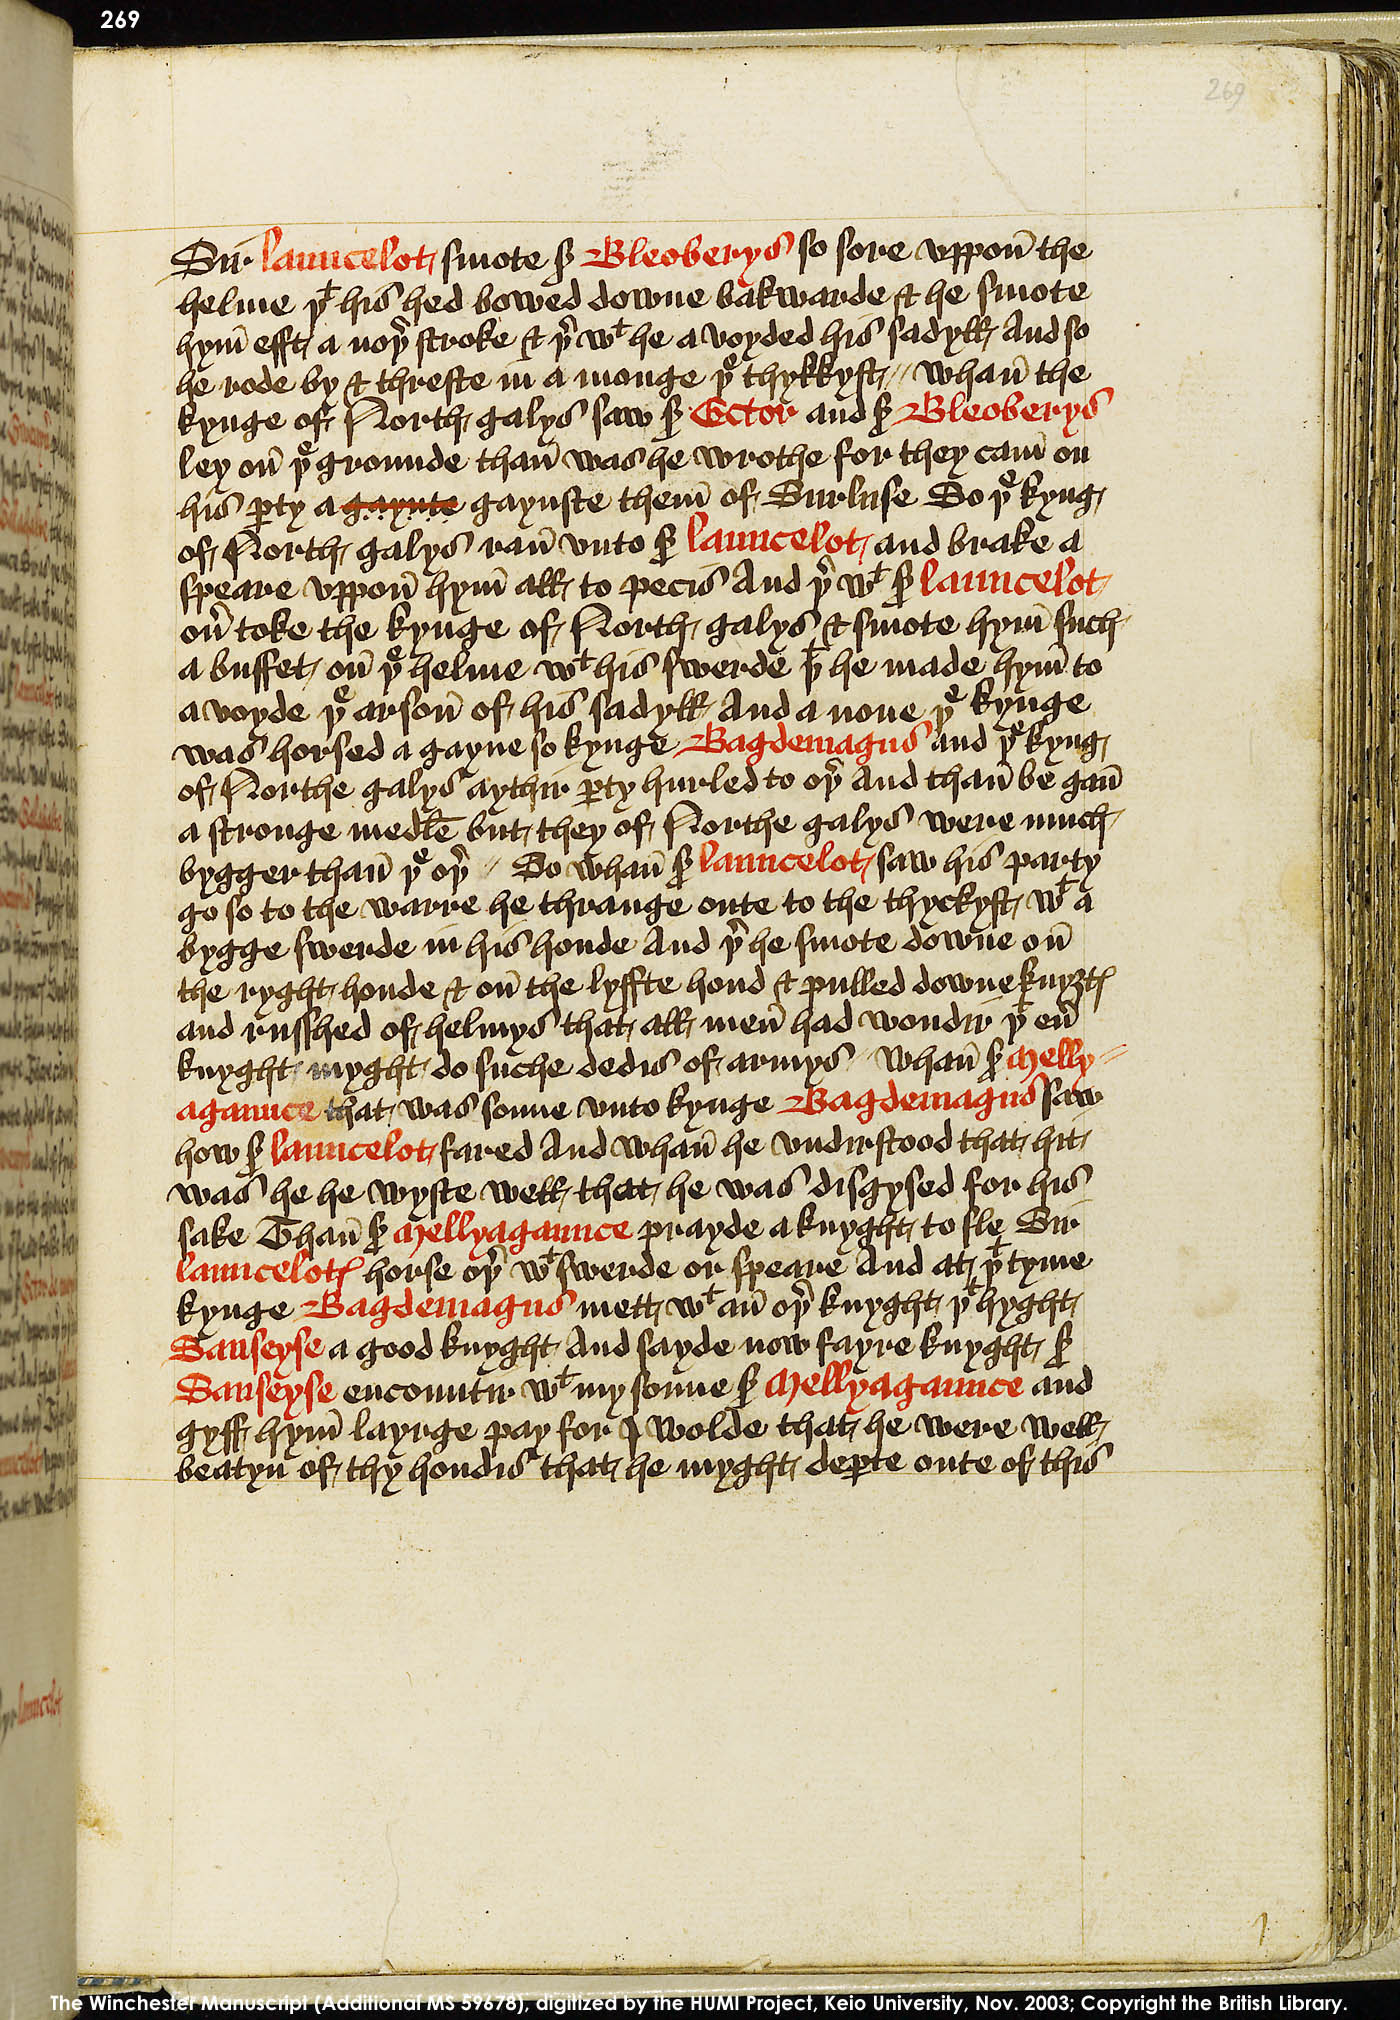 269
269
Sir launcelot smote sʳ Bleoberys so sore vppon̄ the
helme þᵗ his hed bowed downe bakwarde & he smote
hym̄ efft a noþʳ stroke & þʳ wᵗ he a voyded his sadyll And so
he rode by & threste in a monge þᵉ thykkyst // whan̄ the
kynge of North galys saw sʳ Ector and sʳ Bleoberys
ley on̄ þᵉ grounde than̄ was he wrothe for they cam̄ on
his ꝑty a gaynte gaynste them̄ of Surluse So þᵉ kyng
of North galys ran̄ vnto sʳ launcelot and brake a
speare vppon̄ hym̄ all to pecis And þʳ wᵗ sʳ launcelot
oū toke the kynge of North galys & smote hym̄ such
a buffet on̄ þᵉ helme wᵗ his swerde þᵗ he made hym̄ to
a voyde þᵉ arson̄ of his sadyll And a none þᵉ kynge
was horsed a gayne so kynge Bagdemagus and þᵉ kyng
of Northe galys aythir ꝑty hurled to oþʳ And than̄ be gan̄
a stronge medle̅ but they of Northe galys were much
bygger than̄ þᵉ oþʳ // So whan̄ sʳ launcelot saw his party
go so to the warre he thrange oute to the thyckyst wᵗ a
bygge swerde in his honde And þʳ he smote downe on̄
the ryght honde & on̄ the lyffte hond & pulled downe knyȝtꝭ
and russhed of helmys that all men̄ had wondir þᵗ eū
knyght myght do suche dedis of armys // whan̄ sʳ Melly //
agaunce that was sonne vnto kynge Bagdemagus saw
how sʳ launcelot fared And whan̄ he vndirstood that hit
was he he wyste well that he was disgysed for his
sake Than̄ sʳ Mellyagaunce prayde a knyght to sle Sir
launcelotꝭ horse oþʳ wᵗ swerde or speare And at þᵗ tyme
kynge Bagdemagus mett wᵗ an̄ oþʳ knyght þᵗ hyght
Sauseyse a good knyght And sayde now fayre knyght sʳ
Sauseyse encountir wᵗ my sonne sʳ Mellyagaunce and
gyff hym̄ layrge pay for I wolde that he were well
beatyn of thy hondis that he myght deꝑte oute of this
The Winchester Manuscript (Additional MS 59678), digitized by the HUMI Project, Keio University, Nov. 2003; Copyright the British Library.